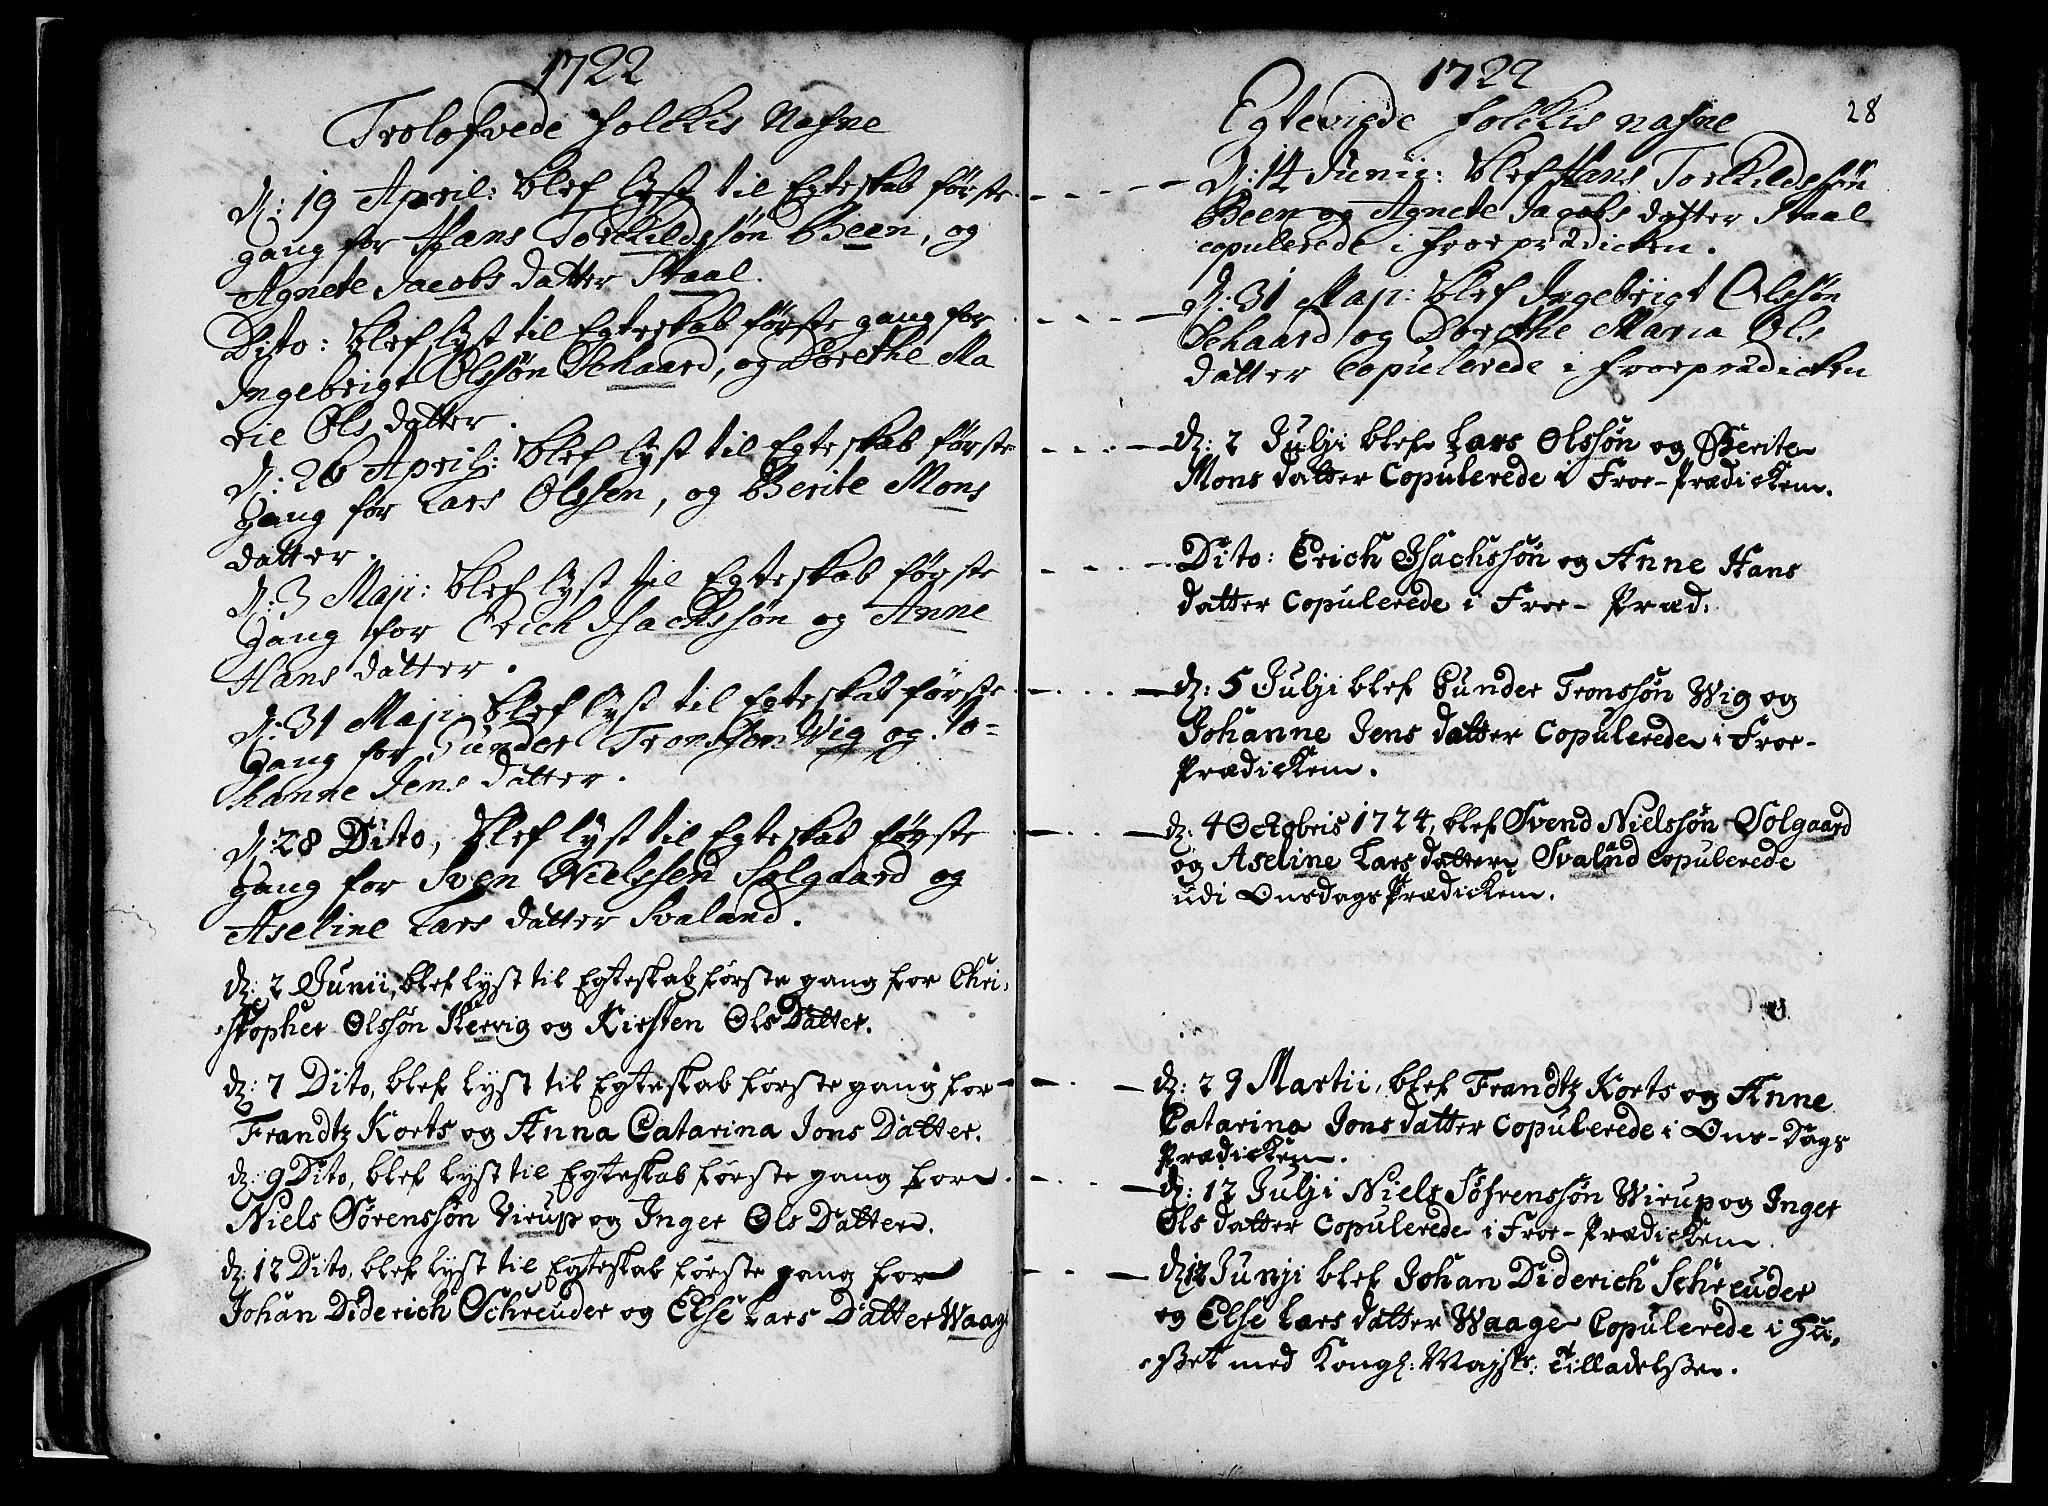 1722
Trolofvede folckis Nafne
d: 19 April: blef lyst til Egteskab første
gang for Hans Torckildssøn Been, og
Agnete Jacobs datter Staal.
Dito: blef lyst til Egteskab første gang for
Ingebrigt Olssøn Schaard, og Dorethe Ma
rie Ols datter.
d: 26 April: blef lyst til Egteskab første
gang for Lars Olssen, og Berite Mons
datter.
d: 3 Maji: blef lyst til Egteskab første
gang for Erich Isachssøn og Anne
Hans datter.
d: 31 Maji blef lyst til Egteskab første
gang for Gunder Tronssen Wig og Jo-
hanne Jens datter.
d: 28 Dito, blef lyst til Egteskab første
gang for Sven Nielssen Solgaard og
Aseline Lars datter Svaland.
d: 2 Junii, blef lyst til Egteskab første gang for Chri-
stopher Olssøn Kervig og Kirsten Ols Datter.
d: 7 Dito, blef lyst til Egteskab første gang for
Frandtz Korts og Anna Catarina Jons Datter.
d: 9 Dito, blef lyst til Egteskab første gang for
Niels Sørenssøn Virup og Inger Ols Datter.
d: 12 Dito, blef lyst til Egteskab første gang for
Johan Diderich Schreuder og Else Lars Datter Waag
1722
28
Egteviede folckis nafne
d: 14 Junii: blef Hans Torckildssøn
Been og Agnete Jacobs datter Staal
copulerede i froeprædicken.
d: 31 Maj: blef Ingebrigt Olssøn
Schaard og Dorethe Maria Ols
datter Copulerede i froeprædicken
d: 2 Julji blef Lars Olssøn og Berite
Mons datter Copulerede i Froe-Prædicken.
Dito: Erich Isachssøn og Anne Hans
datter Copulerede i Froe-Præd:
d: 5 Julji blef Gunder Tronssøn Wig og
Johanne Jens datter Copulerede i Froe-
Prædicken.
d: 4 Octobris 1724, blef Svend Nielssøn Solgaard
og Aseline Lars datter Svaland Copulerede
udi Onsdags Prædicken.
d: 29 Martii, blef Frandtz Korts og Anne
Catarina Jons datter Copulerede i Ons-Dags
Prædicken.
d: 12 Julji Niels Søfrenssøn Wirup og Inger
Ols datter Copulerede i Froe-Prædicken.
d: 12 Junji blef Johan Diderich Schreuder
og Else Lars datter Waage Copulerede i Hu-
sset med Kongl: Majsts: Tilladelsse.